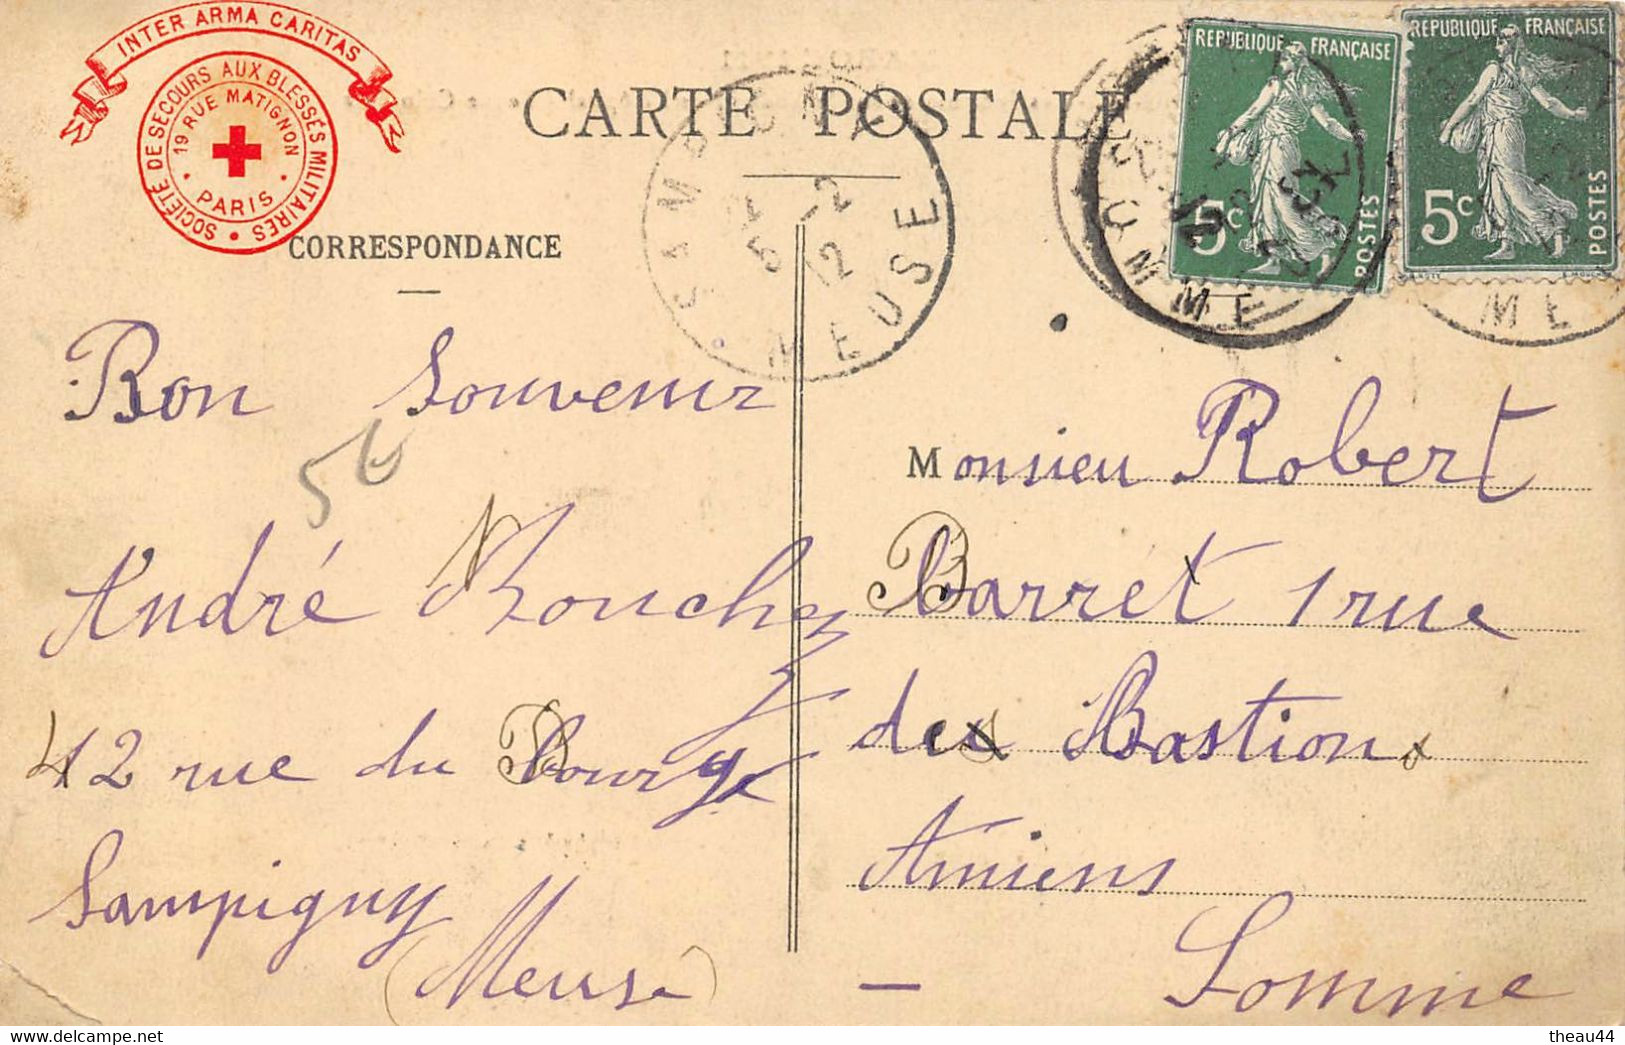 INTER ARMA CARITAS
SOCIÉTÉ DE SECOURS AUX BLESSÉS MILITAIRES
19 RUE MATIGNON
PARIS
CARTE POSTALE
CORRESPONDANCE
SAMPIGNY
5 -2
12
MEUSE
REPUBLIQUE FRANÇAISE
5c
POSTES
REPUBLIQUE FRANÇAISE
5c
POSTES
SOMME
ME
Bon Souvenir
56
André Bouchez
42 rue du Bourg
Sampigny
(Meuse)
Monsieu Robert
Barret 1 rue
des Bastions
Amiens
Somme
theau44